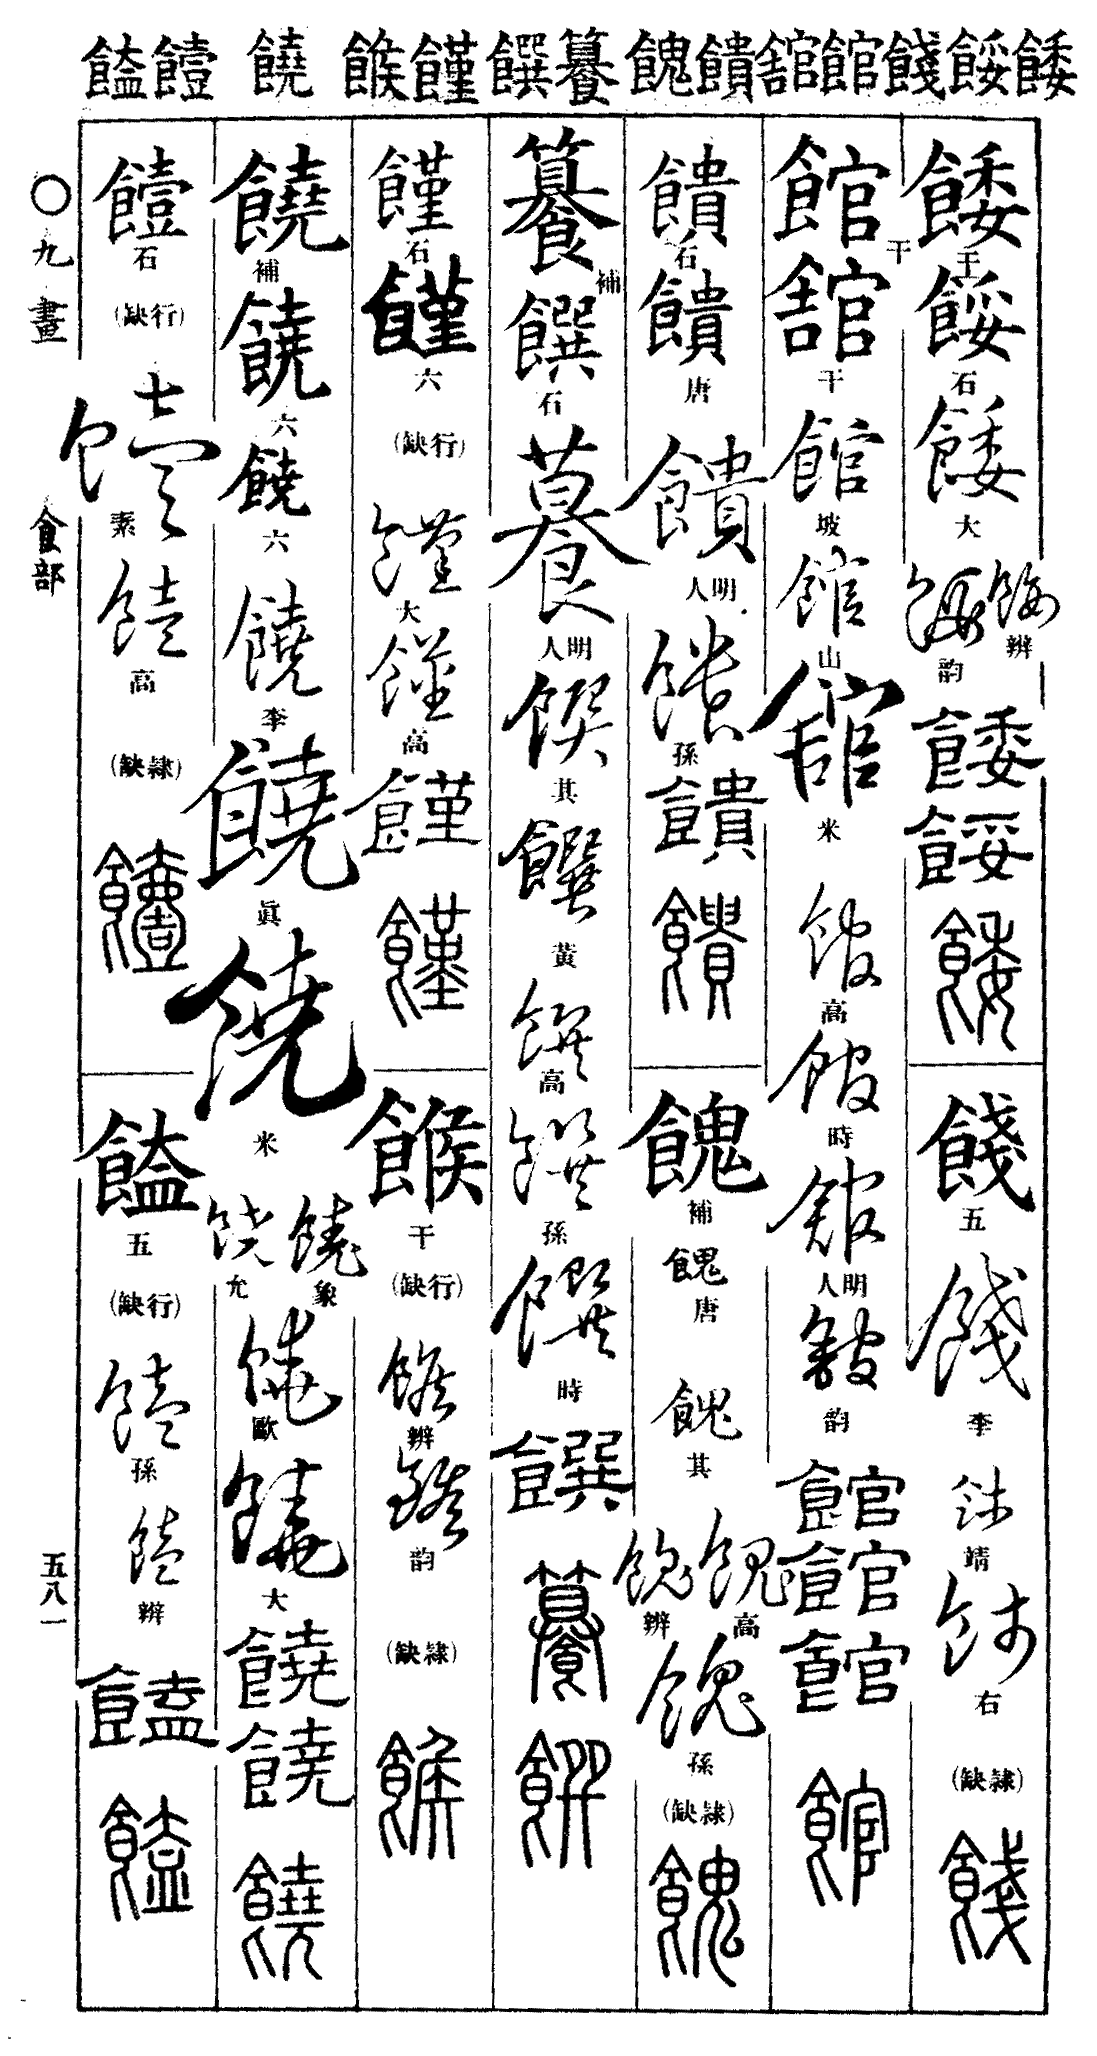 餧餒餞館舘饋餽籑饌饉餱饒饐饁
餧王餒石餧大餒韵餒辨餧餒餧
餞五餞李餞靖餞右(缺隷)餞
館干舘干館坡館山舘米館高館時舘明人舘韵館館館館
饋石饋唐饋明人饋孫饋饋
餽補餽唐餽其餽高餽辨餽孫(缺隷)餽
籑補饌石明人饌其饌黃饌高饌孫饌時饌籑
饉石饉六(缺行)饉大饉高饉饉
餱干(缺行)餱辨餱韵(缺隷)餱
饒補饒六饒六饒李饒眞饒米饒象饒允饒歐饒大饒饒饒
饐石(缺行)饐素饐高(缺隷)饐
饁五(缺行)饁孫饁辨饁饁
〇九畫
食部
五八一